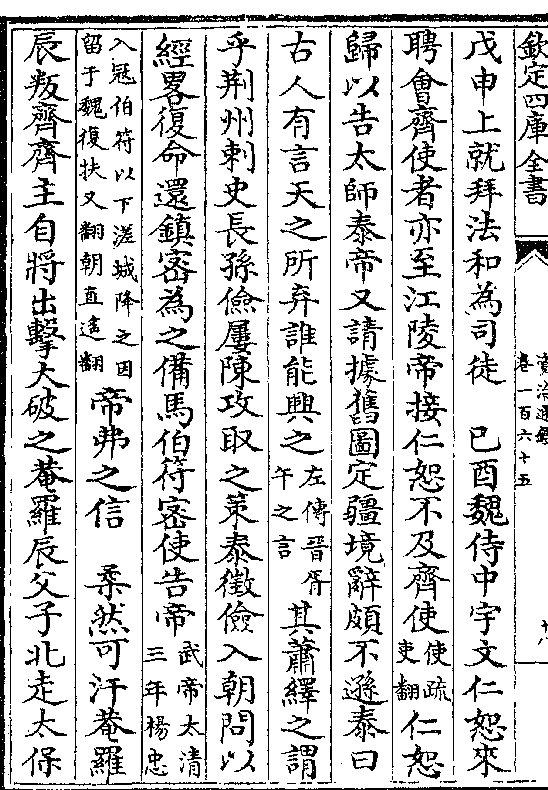 欽定四庫全書
資治通鑑
卷一百六十五
十八
戊申上就拜法和為司徒　己酉魏侍中宇文仁恕來
聘會齊使者亦至江陵帝接仁恕不及齊使使疏吏翻仁恕
歸以告太師泰帝又請據舊圖定疆境辭頗不遜泰曰
古人有言天之所弃誰能興之左傳晉胥午之言其蕭繹之謂
乎荆州刺史長孫儉屢陳攻取之策泰徵儉入朝問以
經畧復命還鎮密為之備馬伯符密使告帝武帝太清三年楊忠
入冦伯符以下溠城降之因留于魏復扶又翻朝直遥翻帝弗之信　柔然可汗菴羅
辰叛齊齊主自將出擊大破之菴羅辰父子北走太保